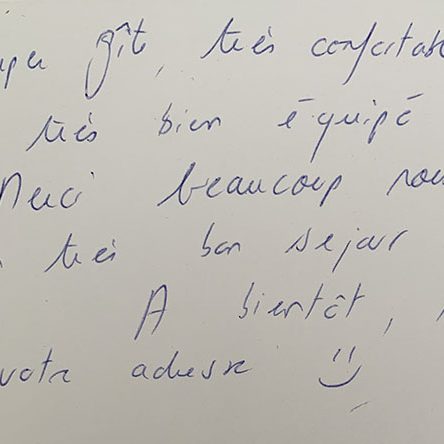 gît, très confortab
très bien équipé
Merci beaucoup pou
très bon séjour
A bientôt,
votre adresse